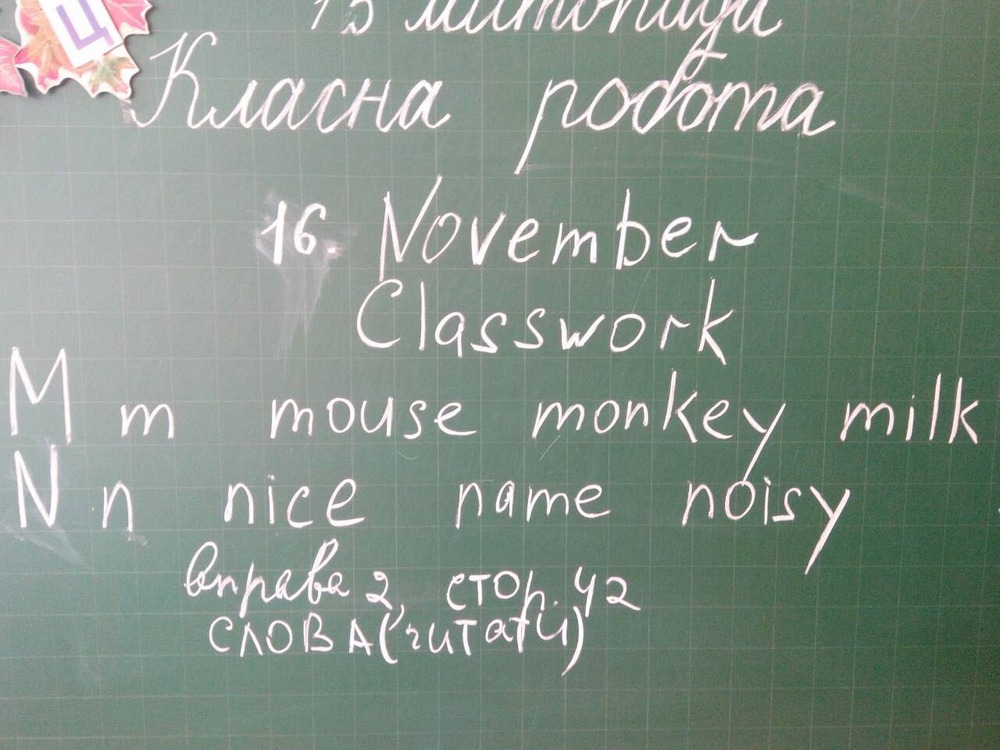 Ц
13 листопада
Класна робота
16. November
Classwork
M m mouse monkey milk
N n nice name noisy
вправа 2, стор. 42
СЛОВА (читати)